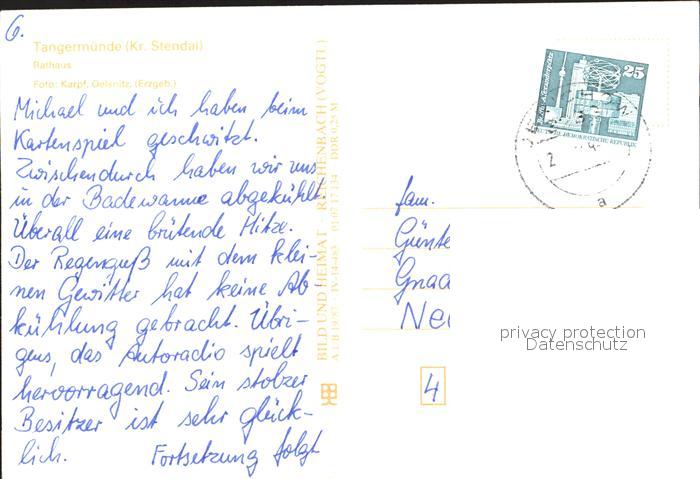 6.
Tangermünde (Kr. Stendal)
Rathaus
Foto: Karpf, Oelsnitz, (Erzgeb.)
Michael und ich haben beim
Kartenspiel geschwitzt.
Zwischendurch haben wir uns
in der Badewanne abgekühlt.
Überall eine brütende Hitze.
Der Regenguß mit dem klei-
nen Gewitter hat keine Ab
kühlung gebracht. Übri-
gens, das Autoradio spielt
hervorragend. Sein stolzer
Besitzer ist sehr glück-
lich. Fortsetzung folgt
BILD UND HEIMAT REICHENBACH (VOGTL)
DDR 0,25 M
25
DEUTSCHE DEMOKRATISCHE REPUBLIK
a
fam.
Günte
Gnaa
Neu
4
privacy protection
Datenschutz